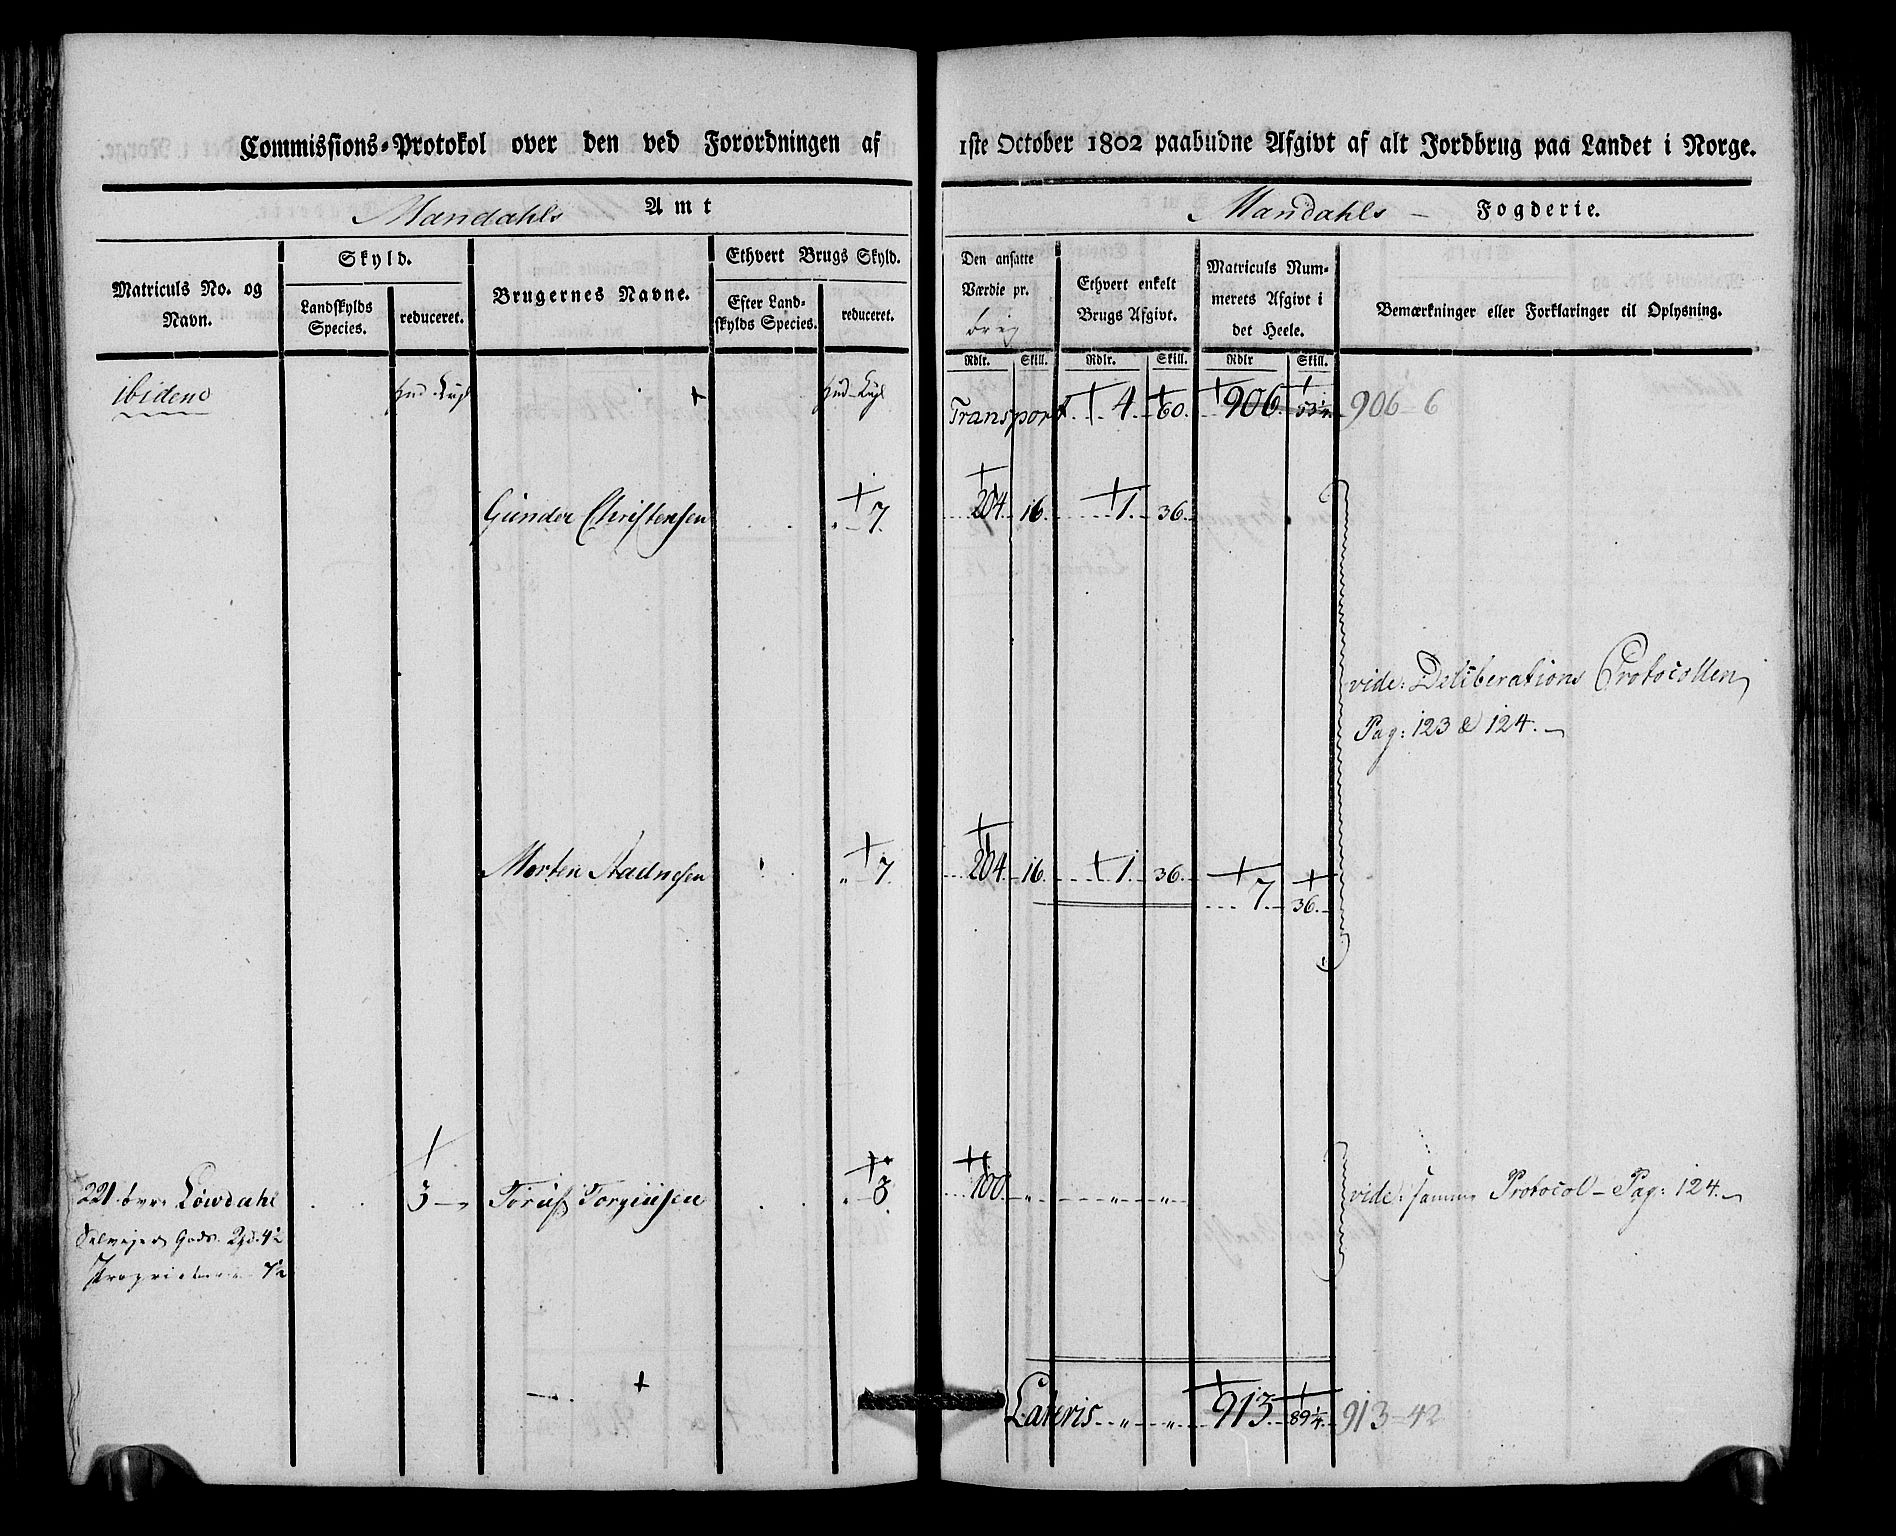 Commissions-Protokol over den ved Forordningen af 1ste October 1802 paabudne Afgivt af alt Jordbrug paa Landet i Norge.
Mandahls Amt
Mandahls – Fogderie.
Matriculs No. og Navn.
Skyld.
Landskylds Species.
reduceret.
Brugernes Navne.
Ethvert Brugs Skyld.
Efter Landskylds Species.
reduceret.
Den ansatte Værdie pr.
Ethvert enkelt Brugs Afgivt.
Matriculs Nummerets Afgivt i det Heele.
Bemærkninger eller Forklaringer til Oplysning.
Rdlr. Skill. Rdlr. Skill. Rdlr Skill.
ibidem
Transport 4 60. 906. 53¼ 906 – 6
Gunder Christensen „ 7. 204. 16. 1. 36.
vide: Deliberations Protocollen
Pag: 123 & 124.
Morten Aadnesen „ 7. 204. 16. 1. 36. 7. 36.
221 øvre Löwdahl 3 Torgiusen „ 3. 100. „ „ „ vide: samme Protocol – Pag: 124.
Selvejer Gods.
Lateris „ „ 913. 89¼. 913 – 42